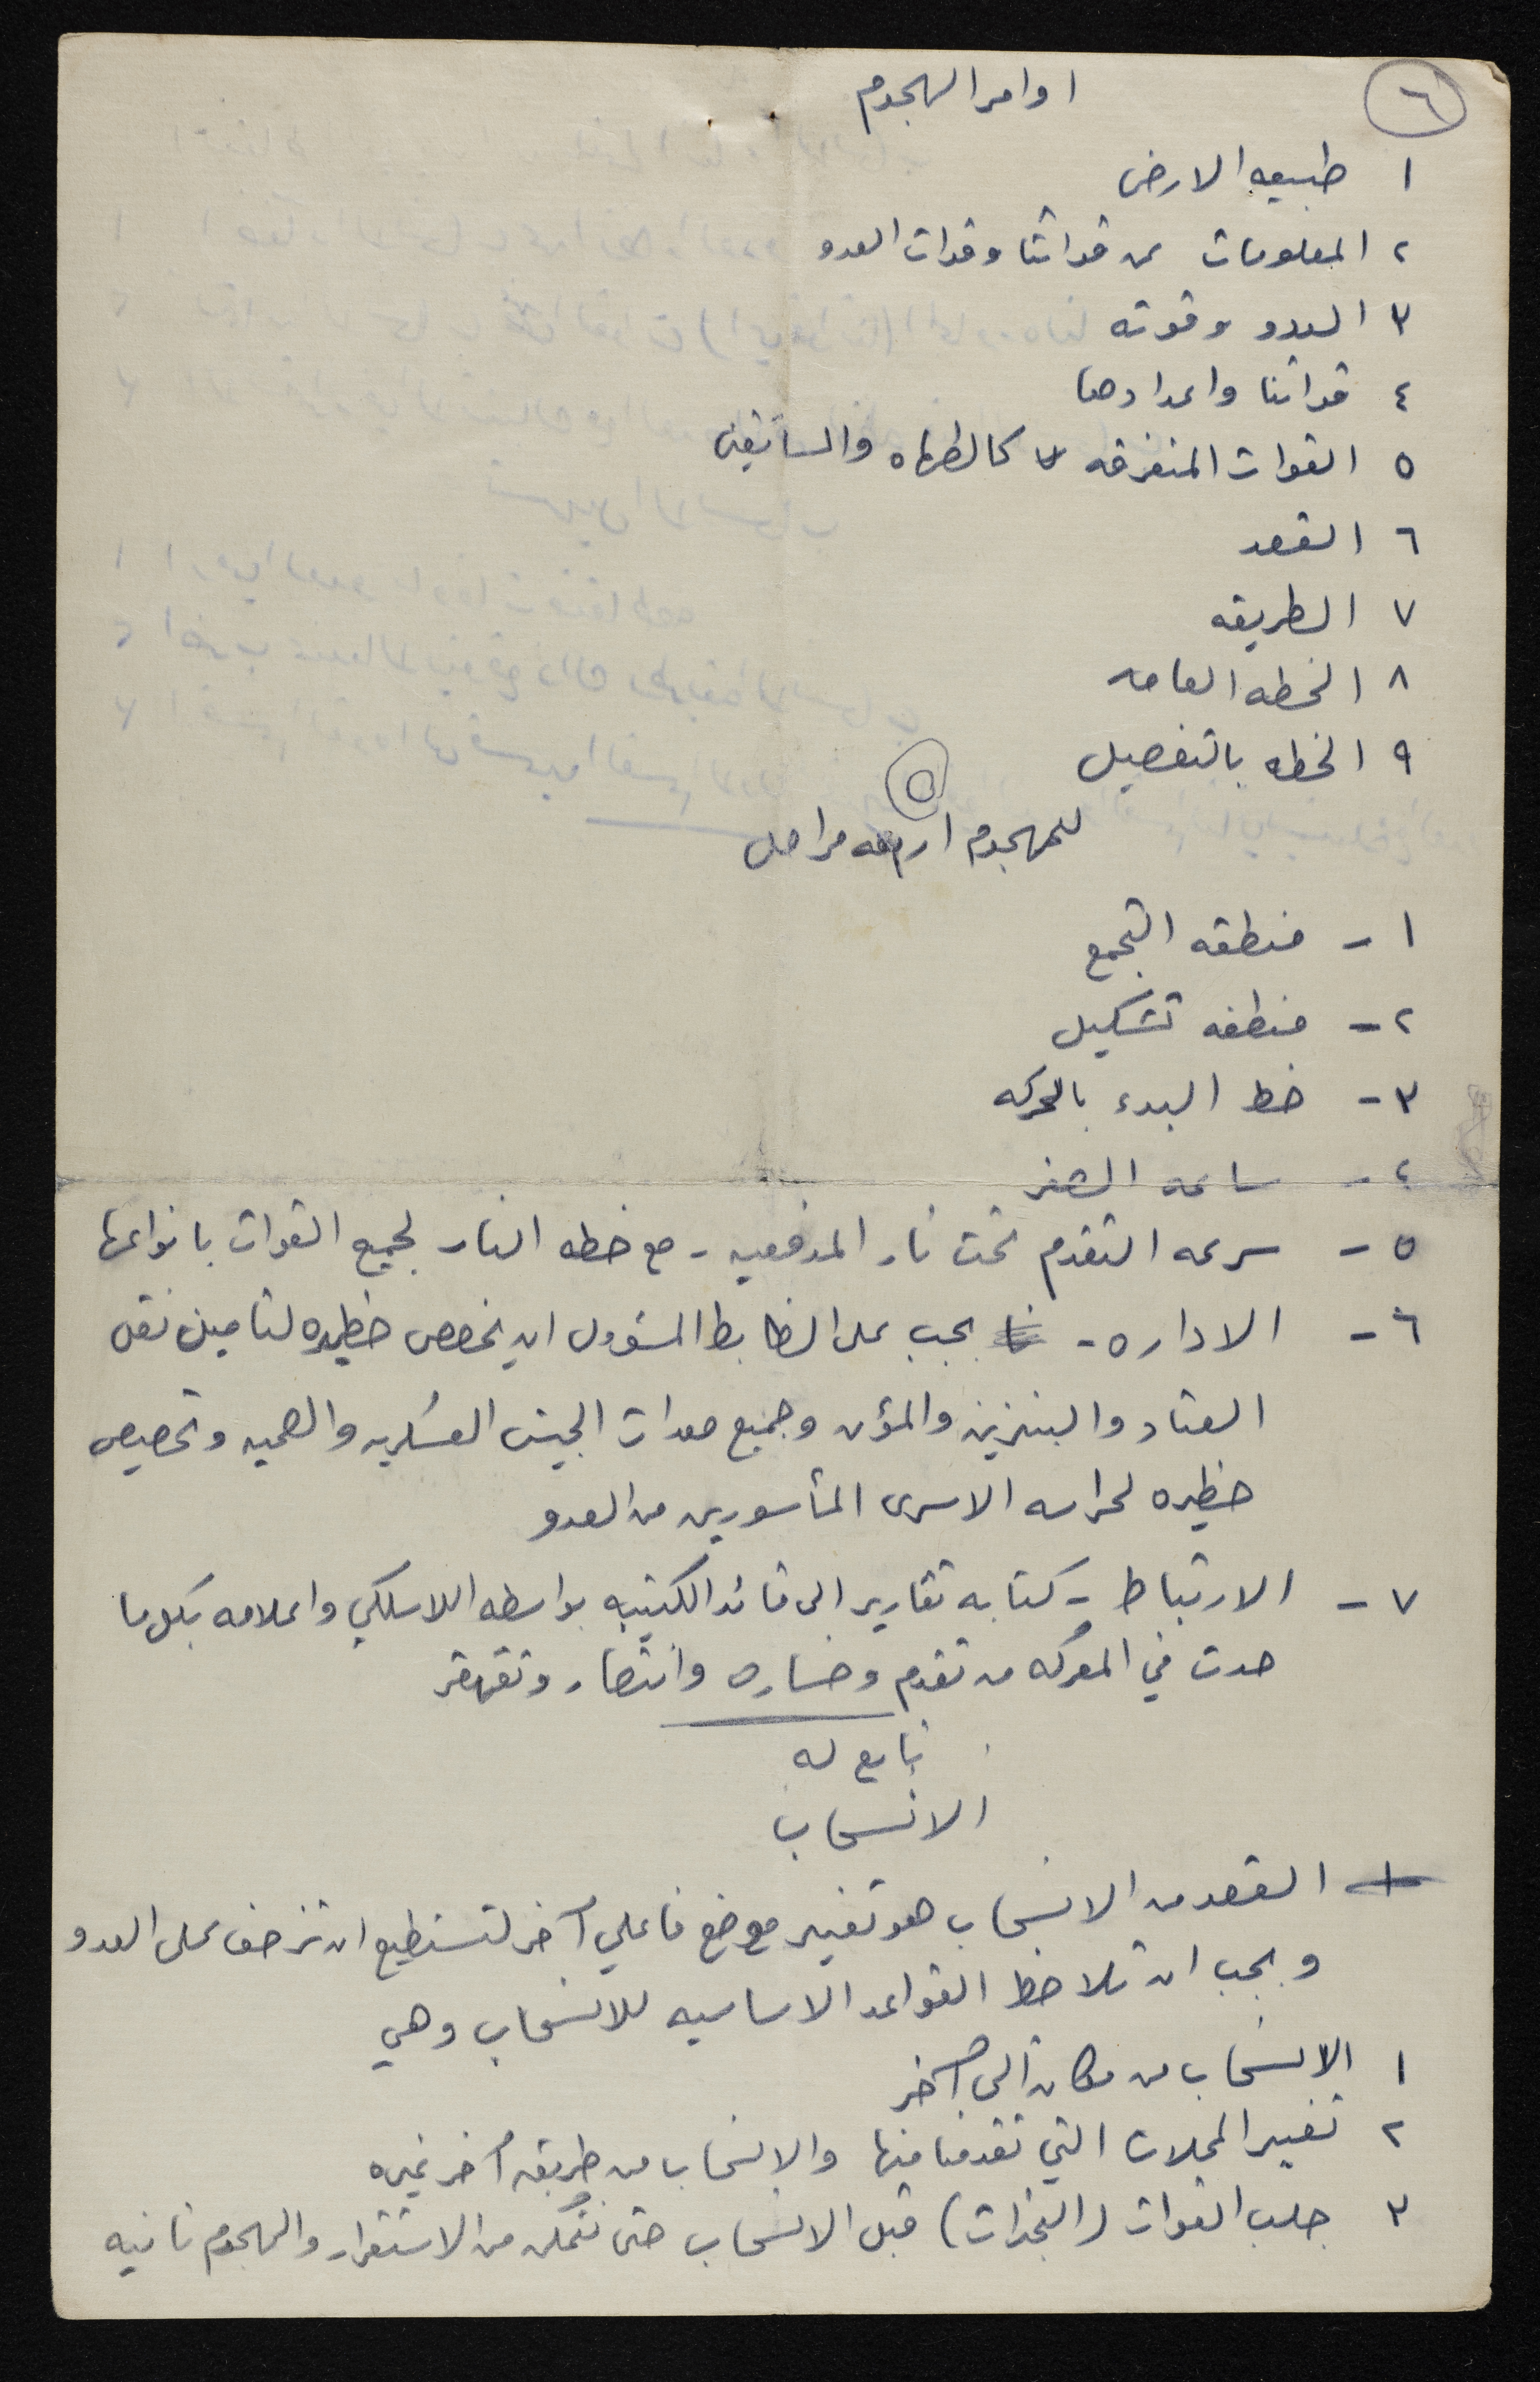 ٦
اوامر الهجوم
١ طبيعه الارض
٢ المعلومات عن قواتنا وقوات العدو
٣ العدو وقوته
٤ قواتنا واعدادها
٥ القوات المتفرقه كالطهاه والسائقين
٦ القصد
٧ الطريقه
٨ الخطه العامه
٩ الخطه بالتفصيل
٥
للهجوم اربعه مراحل
١ - منطقه التجمع
٢ - منطقه تشكيل
٣ - خط البدء بالحركه
٤ - ساعه الصفر
٥ - سرعه التقدم تحت نار المدفعيه - مع خطه النار لجميع القوات بانواعها
٦ - الاداره - يجب على الظابط المسؤول ان يخصص حظيره لتامين نقل
العتاد والبنزين والمؤن وجميع معدات الجيش العسكريه والصحيه وتخصيص
حظيره لحراسه الاسرى المأسورين من العدو
٧ - الارتباط - كتابه تقارير الى قائد الكتيبه بواسطه اللاسلكي واعلامه بكل ما
حدث في المعركه من تقدم وخساره وانتصار وتقهقر
تابع له
الانسحاب
القصد من الانسحاب هو تغيير موضع فاعلي آخر لتستطيع ان تزحف على العدو
ويجب ان تلاحظ القواعد الاساسيه للانسحاب وهي
١ الانسحاب من مكان الى آخر
٢ تغيير المحلات التي تقدمنا منها والانسحاب من طريق آخر غيره
٣ جلب القوات (النجدات) قبل الانسحاب حتى نتمكن من الاستقرار والهجوم ثانيه